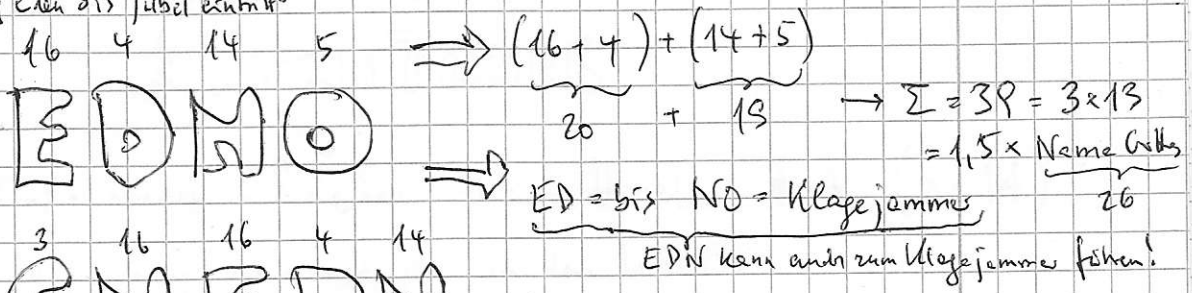 Eden bis Jubel eintritt
16 4 14 5 ⟹ (16+4) + (14+5)
20 + 19 → Σ = 39 = 3x13
EDNO
= 1,5 x Name Gottes
26
⟹ ED = bis NO = Klagejammer
EDN kann auch zum Klagejammer führen!
3 16 16 4 14